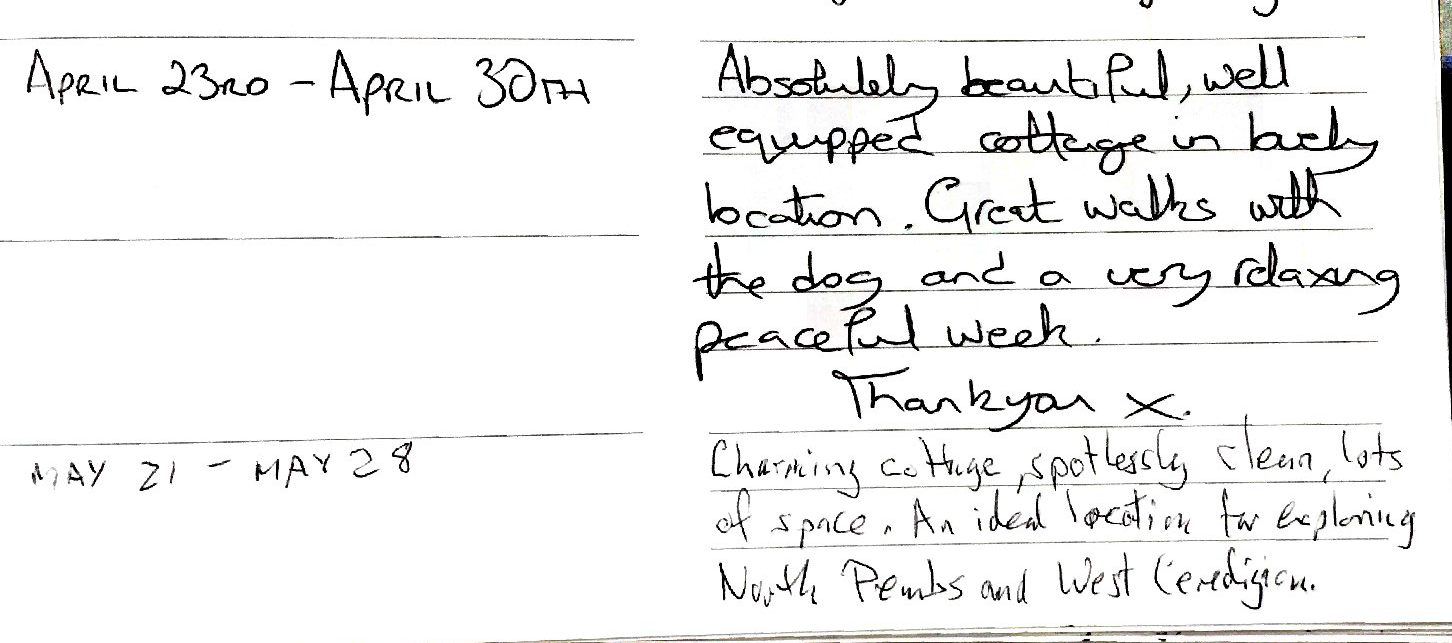 APRIL 23RD - APRIL 30TH
Absolutely beautiful, well
equipped cottage in lovely
location. Great walks with
the dog and a very relaxing
peaceful week.
Thankyou x.
MAY 21 - MAY 28
Charming cottage, spotlessly clean, lots
of space. An ideal location for exploring
North Pembs and West Ceredigion.